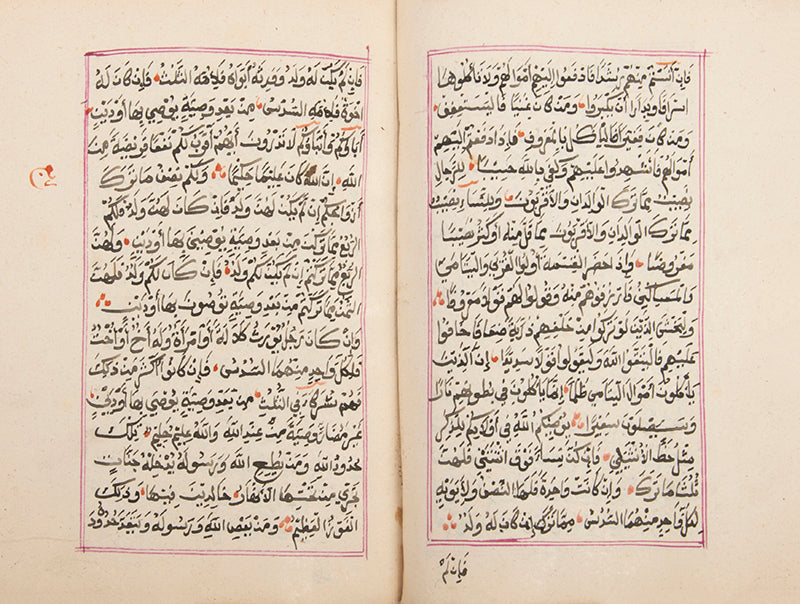 فَإِنْ آنَسْتُمْ مِنْهُمْ رُشْدًا فَادْفَعُوا إِلَيْهِمْ أَمْوَالَهُمْ وَلَا تَأْكُلُوهَا
إِسْرَافًا وَبِدَارًا أَنْ يَكْبَرُوا وَمَنْ كَانَ غَنِيًّا فَلْيَسْتَعْفِفْ
وَمَنْ كَانَ فَقِيرًا فَلْيَأْكُلْ بِالْمَعْرُوفِ فَإِذَا دَفَعْتُمْ إِلَيْهِمْ
أَمْوَالَهُمْ فَأَشْهِدُوا عَلَيْهِمْ وَكَفَى بِاللَّهِ حَسِيبًا لِلرِّجَالِ
نَصِيبٌ مِمَّا تَرَكَ الْوَالِدَانِ وَالْأَقْرَبُونَ وَلِلنِّسَاءِ نَصِيبٌ
مِمَّا تَرَكَ الْوَالِدَانِ وَالْأَقْرَبُونَ مِمَّا قَلَّ مِنْهُ أَوْ كَثُرَ نَصِيبًا
مَفْرُوضًا وَإِذَا حَضَرَ الْقِسْمَةَ أُولُوا الْقُرْبَى وَالْيَتَامَى
وَالْمَسَاكِينُ فَارْزُقُوهُمْ مِنْهُ وَقُولُوا لَهُمْ قَوْلًا مَعْرُوفًا
وَلْيَخْشَ الَّذِينَ لَوْ تَرَكُوا مِنْ خَلْفِهِمْ ذُرِّيَّةً ضِعَافًا خَافُوا
عَلَيْهِمْ فَلْيَتَّقُوا اللَّهَ وَلْيَقُولُوا قَوْلًا سَدِيدًا إِنَّ الَّذِينَ
يَأْكُلُونَ أَمْوَالَ الْيَتَامَى ظُلْمًا إِنَّمَا يَأْكُلُونَ فِي بُطُونِهِمْ نَارًا
وَسَيَصْلَوْنَ سَعِيرًا يُوصِيكُمُ اللَّهُ فِي أَوْلَادِكُمْ لِلذَّكَرِ
مِثْلُ حَظِّ الْأُنْثَيَيْنِ فَإِنْ كُنَّ نِسَاءً فَوْقَ اثْنَتَيْنِ فَلَهُنَّ
ثُلُثَا مَا تَرَكَ وَإِنْ كَانَتْ وَاحِدَةً فَلَهَا النِّصْفُ وَلِأَبَوَيْهِ
لِكُلِّ وَاحِدٍ مِنْهُمَا السُّدُسُ مِمَّا تَرَكَ إِنْ كَانَ لَهُ وَلَدٌ
فَإِنْ لَمْ
فَإِنْ لَمْ يَكُنْ لَهُ وَلَدٌ وَوَرِثَهُ أَبَوَاهُ فَلِأُمِّهِ الثُّلُثُ فَإِنْ كَانَ لَهُ
إِخْوَةٌ فَلِأُمِّهِ السُّدُسُ مِنْ بَعْدِ وَصِيَّةٍ يُوصِي بِهَا أَوْ دَيْنٍ
آبَاؤُكُمْ وَأَبْنَاؤُكُمْ لَا تَدْرُونَ أَيُّهُمْ أَقْرَبُ لَكُمْ نَفْعًا فَرِيضَةً مِنَ
اللَّهِ إِنَّ اللَّهَ كَانَ عَلِيمًا حَكِيمًا وَلَكُمْ نِصْفُ مَا تَرَكَ
أَزْوَاجُكُمْ إِنْ لَمْ يَكُنْ لَهُنَّ وَلَدٌ فَإِنْ كَانَ لَهُنَّ وَلَدٌ فَلَكُمُ
الرُّبُعُ مِمَّا تَرَكْنَ مِنْ بَعْدِ وَصِيَّةٍ يُوصِينَ بِهَا أَوْ دَيْنٍ وَلَهُنَّ
الرُّبُعُ مِمَّا تَرَكْتُمْ إِنْ لَمْ يَكُنْ لَكُمْ وَلَدٌ فَإِنْ كَانَ لَكُمْ وَلَدٌ فَلَهُنَّ
الثُّمُنُ مِمَّا تَرَكْتُمْ مِنْ بَعْدِ وَصِيَّةٍ تُوصُونَ بِهَا أَوْ دَيْنٍ
وَإِنْ كَانَ رَجُلٌ يُورَثُ كَلَالَةً أَوِ امْرَأَةٌ وَلَهُ أَخٌ أَوْ أُخْتٌ
فَلِكُلِّ وَاحِدٍ مِنْهُمَا السُّدُسُ فَإِنْ كَانُوا أَكْثَرَ مِنْ ذَلِكَ
فَهُمْ شُرَكَاءُ فِي الثُّلُثِ مِنْ بَعْدِ وَصِيَّةٍ يُوصَى بِهَا أَوْ دَيْنٍ
غَيْرَ مُضَارٍّ وَصِيَّةً مِنَ اللَّهِ وَاللَّهُ عَلِيمٌ حَلِيمٌ تِلْكَ
حُدُودُ اللَّهِ وَمَنْ يُطِعِ اللَّهَ وَرَسُولَهُ يُدْخِلْهُ جَنَّاتٍ
تَجْرِي مِنْ تَحْتِهَا الْأَنْهَارُ خَالِدِينَ فِيهَا وَذَلِكَ
الْفَوْزُ الْعَظِيمُ وَمَنْ يَعْصِ اللَّهَ وَرَسُولَهُ وَيَتَعَدَّ حُدُودَ